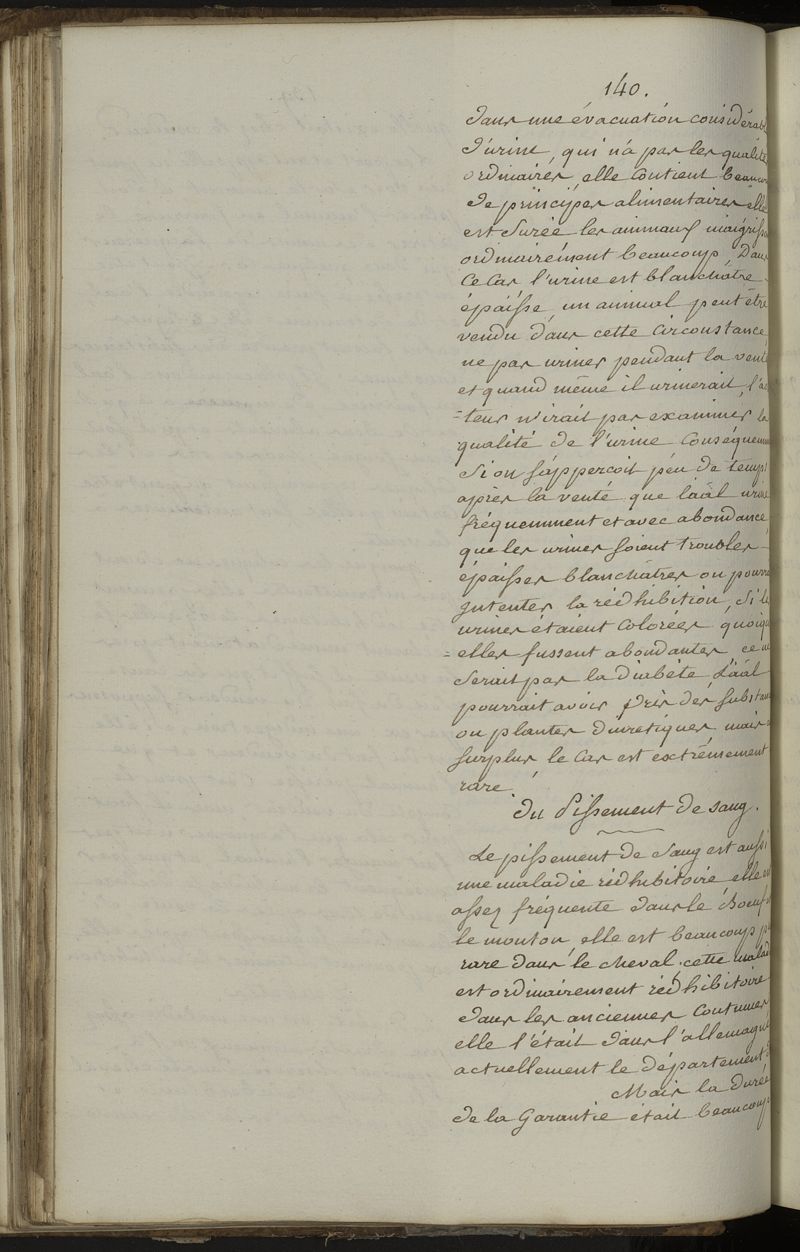 140.
dans une évacuation considérab
d'urine, qui n'a pas les qualité
ordinaires, elle contient beaucou
de principes alimentaires elle
est Surée les animaux maigrisse
ordinairement beaucoup, Dans
ce Cas l'urine est blanchâtre
épaisse, un animal peut être
vendu dans cette circonstance,
ne pas uriner pendant la vente
et quand même il urinerait, l'ac
=teur n'irait pas examiner la
qualité de l'urine Conséquemm
Si on s'apperçoit peu de temps
après la vente que l'aâl urine
fréquemment et avec abondance,
que les urines soient troubles
épaisses blanchâtres on pourra
Intenter la rédhibition, Si le
urines étaient Colorées quoiqu
=elles fussent abondantes, ce ne
Serait pas la diabète, L'aâl
pourrait avoir pris des substan
ou plantes diurétiques, mais
surplus le Cas est extrêmement
rare.
Du Pissement de sang.
Le pissement de Sang est aussi
une maladie rédhibitoire, elle est
assez fréquente dans le Boeuf
le mouton, elle est beaucoup p
rare dans le cheval, cette malad
est ordinairement rédhibitoire
dans les anciennes Coutumes,
elle l'était dans l'allemagne
actuellement le département d
Mais la durée
de la Garantie était beaucoup